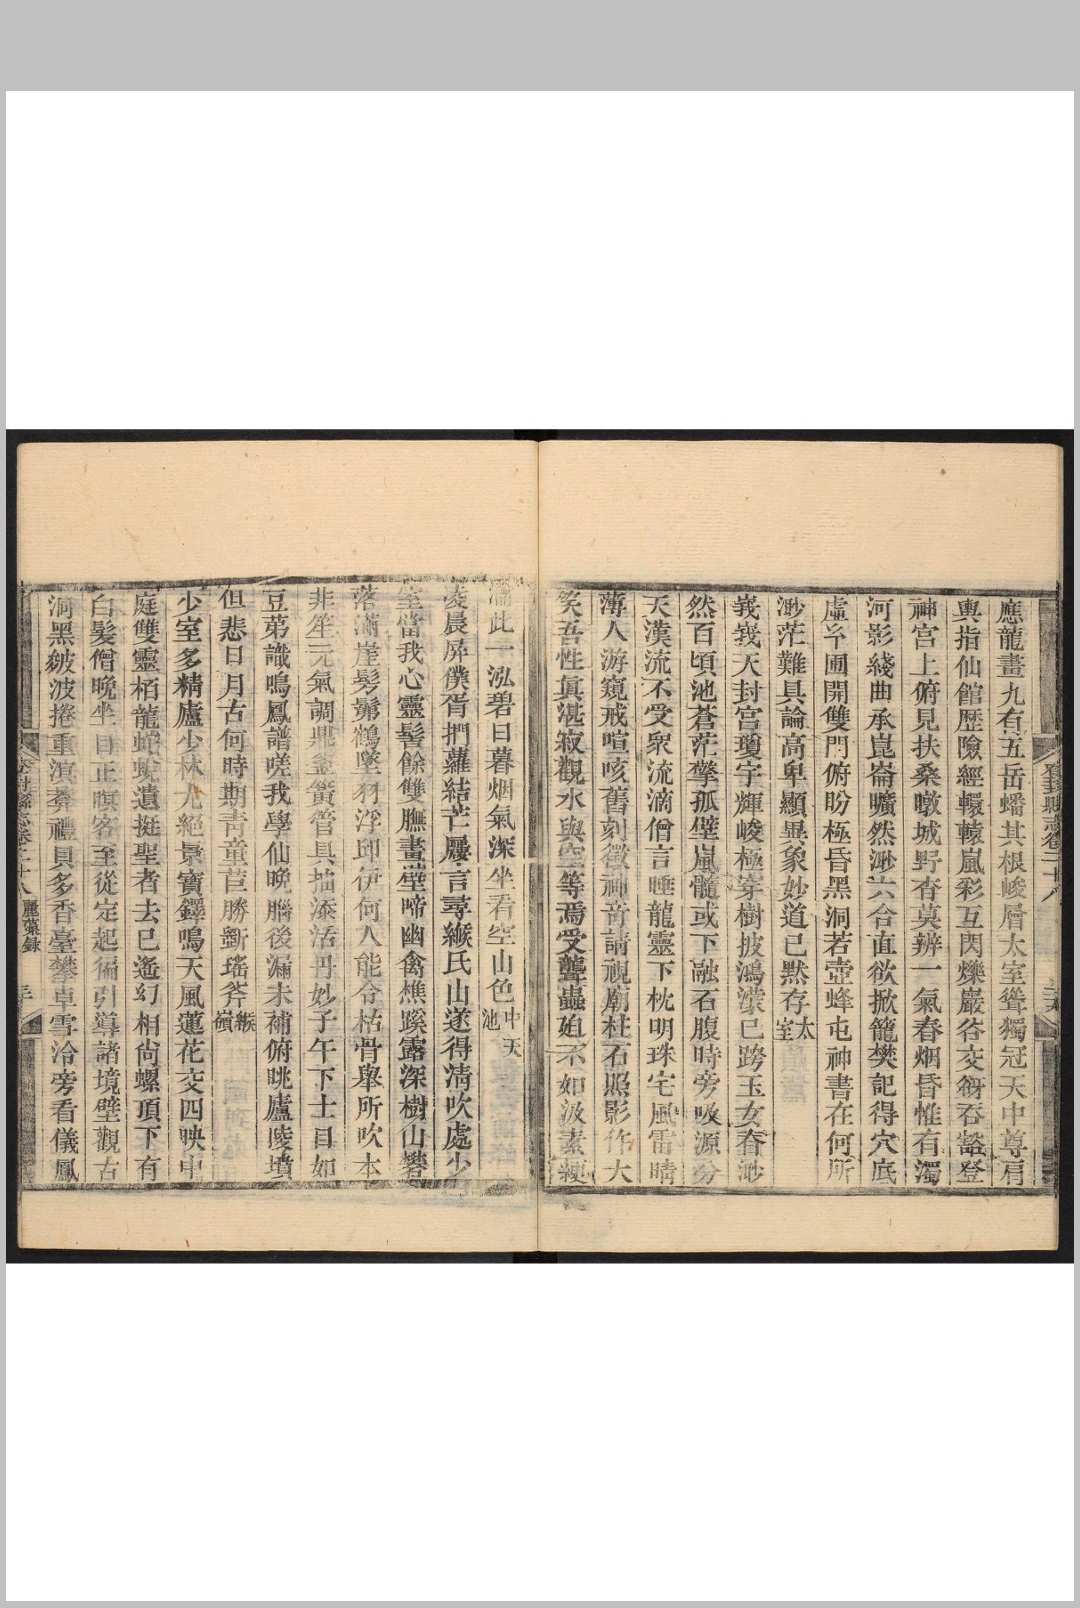 應龍畫九有五岳蟠其根峻層太室聳獨冠天中尊肩
輿指仙館歴險經轘轅嵐彩互閃爍巖谷交谺吞豁登
神宮上俯見扶桑暾城野杳莫辨一氣春烟昏惟有濁
河影綫曲承崑崙曠然渺六合直欲掀籠樊記得穴底
虛窂圃開雙門俯盼極昏黑洞若壺蜂屯神書在何所
渺茫難具論高卑顯異象妙道已默存太室
義義天封宮瓊宇輝峻極穿樹披鴻濛已跨玉女脊渺
然百頃池蒼茫擎孤壁嵐髓或下融石腹時旁吸源分
天漢流不受衆流滴僧言睡龍靈下枕明珠宅風雷晴
薄人游窺戒喧咳舊刻徵神奇請視廟柱石照影作大
笑吾性眞湛寂觀水與空等焉受聾蟲廹不如汲素綆
濡此一泓碧日暮烟氣深坐看空山色中天池
凌晨屏僕胥捫蘿結芒屨言尋緱氏山遂得淸吹處少
室當我心靈髻餘雙膴畫壁啼幽禽樵蹊露深樹山礬
落滿崖髣髴鶴墜羽浮邱伊何人能令枯骨舉所吹本
非笙元氣調鼎釜簧管具抽添活丹妙子午下士目如
豆第識鳴鳳譜嗟我學仙晩腦後漏未補俯眺廬陵墳
但悲日月古何時期靑童苣勝斵瑤斧緱嶺
少室多精廬少林尤絕景寶鐸鳴天風蓮花交四映中
庭雙靈栢龍蛇蛻遺挺聖者去已遙幻相尙螺頂下有
白髮僧晩坐目正瞑客至從定起徧引導諸境壁觀古
洞黑皴波捲重溟葬禮貝多香臺攀卓雪泠旁看儀鳳
登封縣志卷二十八
麗藻錄